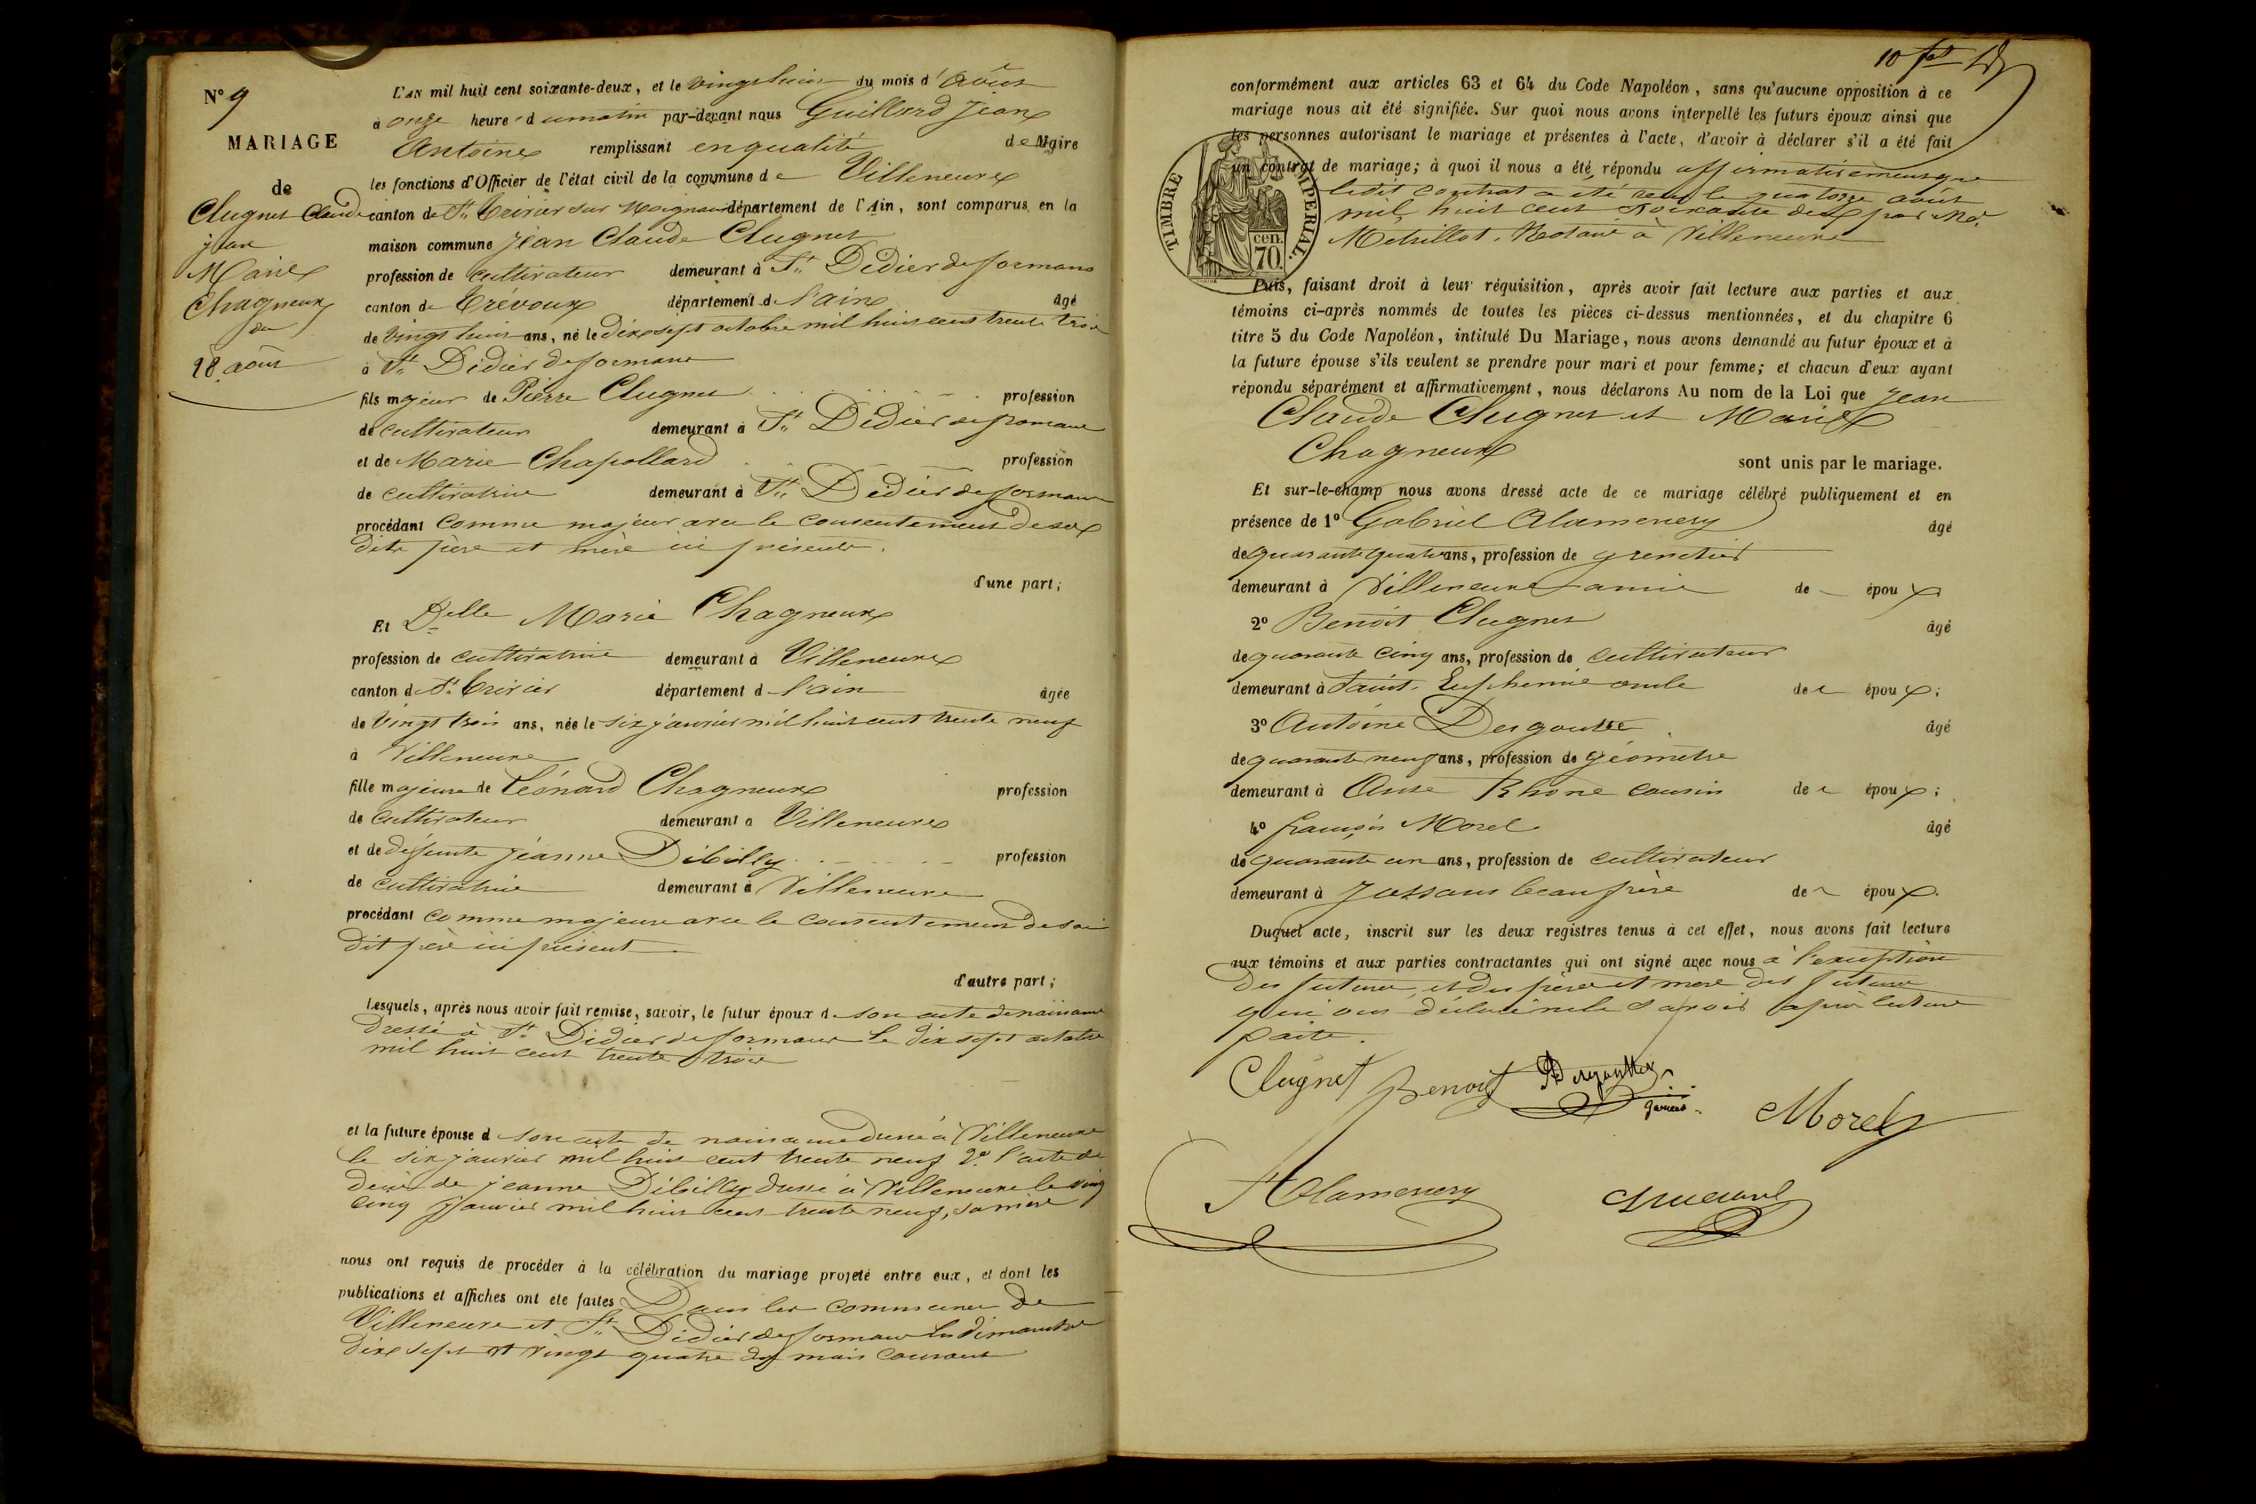 N° 9
MARIAGE
de
Clugnet Claude
jean
Marie
Chagneux
du
28 août
L'AN mil huit cent soixante-deux, et le vingt huit du mois d'Août
à onze heure s d u matin par-devant nous Guillard Jean
Antoine remplissant en qualité de Maire
les fonctions d'Officier de l'état civil de la commune de Villeneuve
canton de St Trivier sur Moignans département de l'Ain, sont comparus en la
maison commune Jean Claude Clugnet
profession de cultivateur demeurant à St Didier de formans
canton de Trévoux département d l'ain âgé
de vingt huit ans, né le dix sept octobre mil huit cent trente trois
à St Didier de formans
fils majeur de Pierre Clugnet profession
de cultivateur demeurant à St Didier de fromans
et de Marie Chapollard profession
de cultivatrice demeurant à St Didier de formans
procédant comme majeur avec le consentement de ses
dits père et mère ici présents.
d'une part;
Et Delle Marie Chagneux
profession de cultivatrice demeurant à Villeneuve
canton de St Trivier département d l'ain âgée
de vingt trois ans, née le six janvier mil huit cent trente neuf
à Villeneuve
fille majeure de Léonard Chagneux profession
de cultivateur demeurant à Villeneuve
et de défunte jeanne Débilly profession
de cultivatrice demeurant à Villeneuve
procédant comme majeure avec le consentement de son
dit père ici présent
d'autre part;
Lesquels, après nous avoir fait remise, savoir, le futur époux d e son acte de naissance
dressé à St Didier de formans le dix sept octobre
mil huit cent trente trois
et la future épouse d e son acte de naissance dressé à Villeneuve
le six janvier mil huit cent trente neuf 2° l'acte de
décès de jeanne Débilly dressé à Villeneuve le vingt
cinq janvier mil huit cent trente neuf, sa mère
nous ont requis de procéder à la célébration du mariage projeté entre eux, et dont les
publications et affiches ont été faites Dans les communes de
Villeneuve et St Didier de formans les dimanches
dix sept et vingt quatre du mois courant
10 fet
conformément aux articles 63 et 64 du Code Napoléon, sans qu'aucune opposition à ce
mariage nous ait été signifiée. Sur quoi nous avons interpellé les futurs époux ainsi que
les personnes autorisant le mariage et présentes à l'acte, d'avoir à déclarer s'il a été fait
un contrat de mariage; à quoi il nous a été répondu affirmativement que
ledit contrat a été reçu le quatorze août
mil huit cent soixante deux par Me
Métrillot, Notaire à Villeneuve
TIMBRE IMPERIAL.
cen.
70
Puis, faisant droit à leur réquisition, après avoir fait lecture aux parties et aux
témoins ci-après nommés de toutes les pièces ci-dessus mentionnées, et du chapitre 6
titre 5 du Code Napoléon, intitulé Du Mariage, nous avons demandé au futur époux et à
la future épouse s'ils veulent se prendre pour mari et pour femme; et chacun d'eux ayant
répondu séparément et affirmativement, nous déclarons Au nom de la Loi que Jean
Claude Clugnet et Marie
Chagneux
sont unis par le mariage.
Et sur-le-champ nous avons dressé acte de ce mariage célébré publiquement et en
présence de 1° Gabriel Alamercery âgé
de quarante quatre ans, profession de grenetier
demeurant à Villeneuve ami de époux
2° Benoit Clugnet âgé
de quarante cinq ans, profession de cultivateur
demeurant à Saint Euphémie oncle de époux;
3° Antoine Desgoutte âgé
de quarante neuf ans, profession de géomètre
demeurant à Anse Rhône cousin de époux;
4° françois Morel âgé
de quarante un ans, profession de cultivateur
demeurant à Jassans beau frère de époux.
Duquel acte, inscrit sur les deux registres tenus à cet effet, nous avons fait lecture
aux témoins et aux parties contractantes qui ont signé avec nous à l'exception
des futurs, et des pères et mère des futurs
qui ont déclaré ne le savoir après lecture
faite.
Clugnet Benoit
Desgouttes
Morel
Alamercery
Guillard